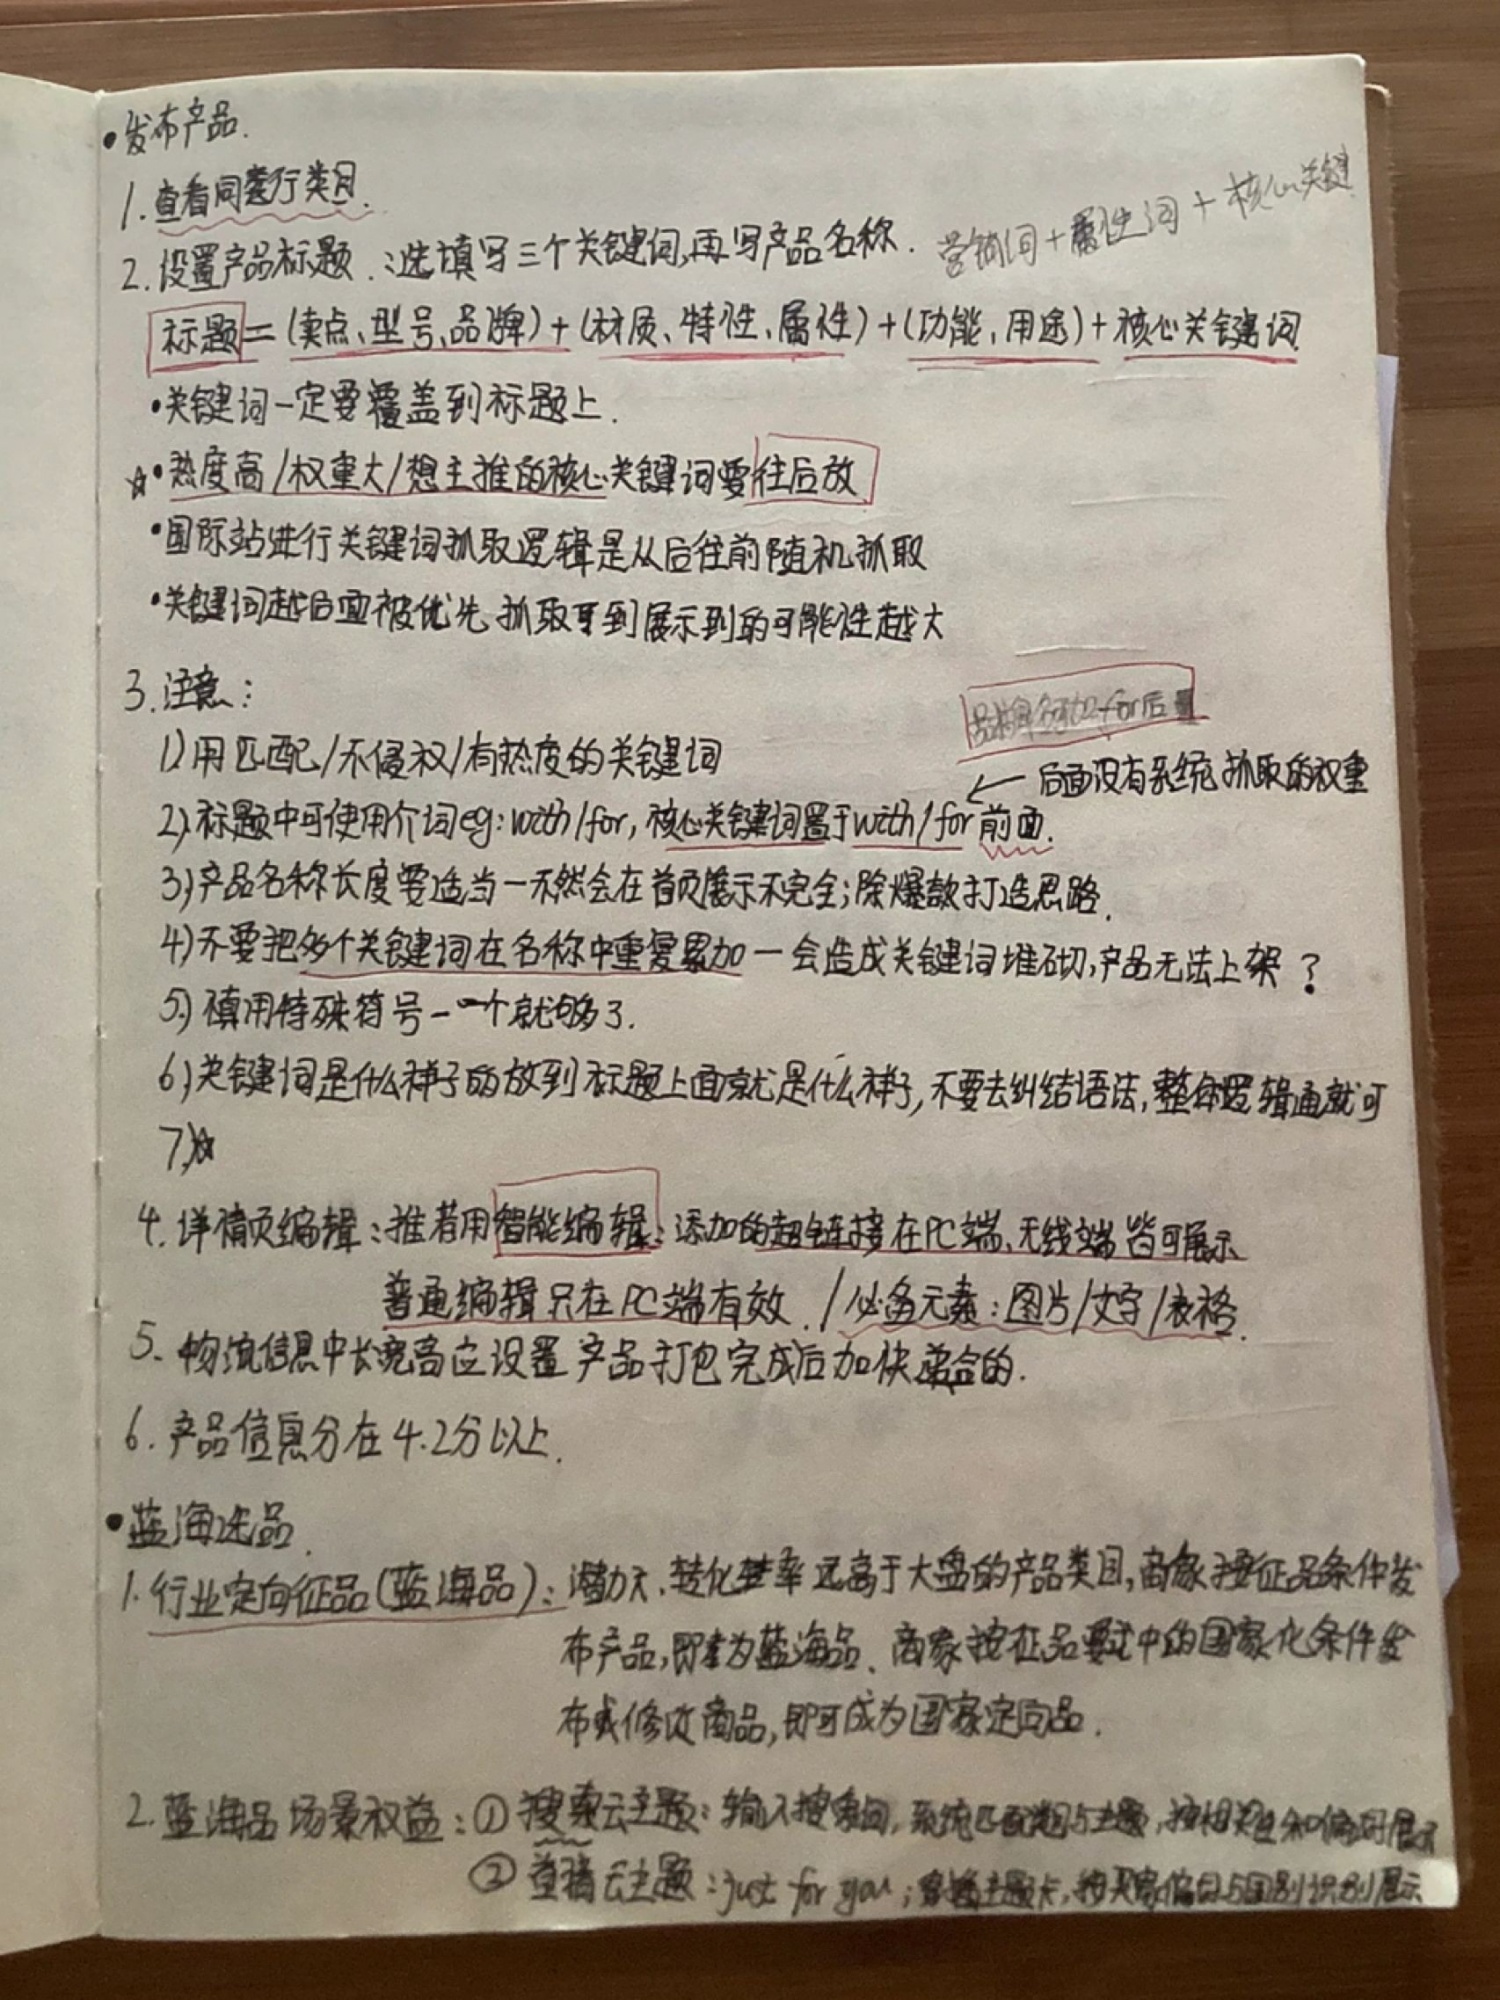 •发布产品.
1.查看同行类目.
2.设置产品标题.:选填写三个关键词,再写产品名称. 营销词+属性词+核心关键
标题=(卖点、型号、品牌)+(材质、特性、属性)+(功能,用途)+核心关键词
•关键词一定要覆盖到标题上.
☆•热度高/权重大/想主推的核心关键词要往后放
•国际站进行关键词抓取逻辑是从后往前随机抓取
•关键词越后面被优先抓取到展示到的可能性越大
3.注意:
品牌名可加for后面
1)用匹配/不侵权/有热度的关键词
← 后面没有系统抓取的权重
2)标题中可使用介词eg:with/for,核心关键词置于with/for前面.
3)产品名称长度要适当—不然会在首页展示不完全;除爆款打造思路.
4)不要把多个关键词在名称中重复累加—会造成关键词堆砌,产品无法上架?
5)慎用特殊符号—一个就够了.
6)关键词是什么样子的放到标题上面就是什么样子,不要去纠结语法,整体逻辑通就可
7)☆
4.详情页编辑:推荐用智能编辑:添加的超链接在PC端、无线端皆可展示
普通编辑只在PC端有效./必备元素:图片/文字/表格.
5.物流信息中长宽高应设置产品打包完成后加快递合的.
6.产品信息分在4.2分以上.
•蓝海选品.
1.行业定向征品(蓝海品):潜力大、转化率远高于大盘的产品类目,商家按征品条件发
布产品,即为蓝海品、商家按征品要求中的国家化条件发
布或修改商品,即可成为国家定向品.
2.蓝海品场景权益:①搜索云主题:输入搜索词,系统匹配类目与主题,按相关性和偏好展示
②首猜云主题:just for you;穿插主题卡,按买家偏好与国别识别展示